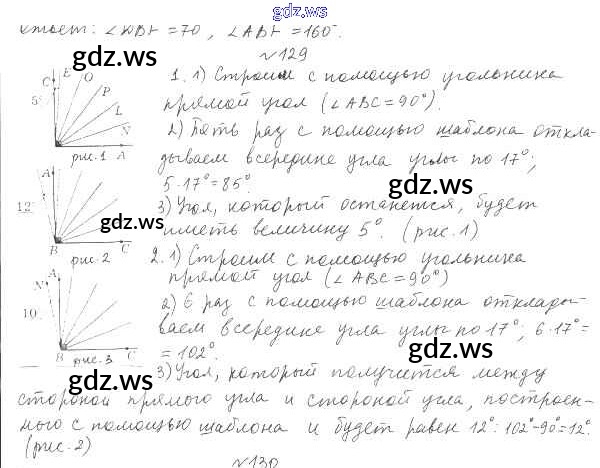 gdz.ws
ответ: ∠КВF = 70, ∠ABF = 160°.
gdz.ws
№129
1. 1) Строим с помощью угольника
прямой угол (∠ABC = 90°).
2) Пять раз с помощью шаблона откла-
дываем всередине угла углы по 17°;
5·17° = 85°.
gdz.ws
3) Угол, который останется, будет
иметь величину 5°. (рис. 1)
2. 1) Строим с помощью угольника
прямой угол (∠ABC = 90°)
2) 6 раз с помощью шаблона отклады-
ваем всередине угла углы по 17°; 6·17° =
= 102°.
gdz.ws
3) Угол, который получится между
стороной прямого угла и стороной угла, построен-
ного с помощью шаблона и будет равен 12°: 102°-90°=12°.
(рис. 2)
gdz.ws
№130
C E O P L N
5°
рис. 1 A
gdz.ws
A
12
B C
рис. 2
gdz.ws
A
10
B C
рис. 3
gdz.ws